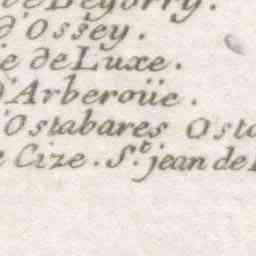 de Begorry.
d'Ossey.
e de Luxe.
d'Arberoüe.
d'Ostabares Osta
e Cize. St. jean de